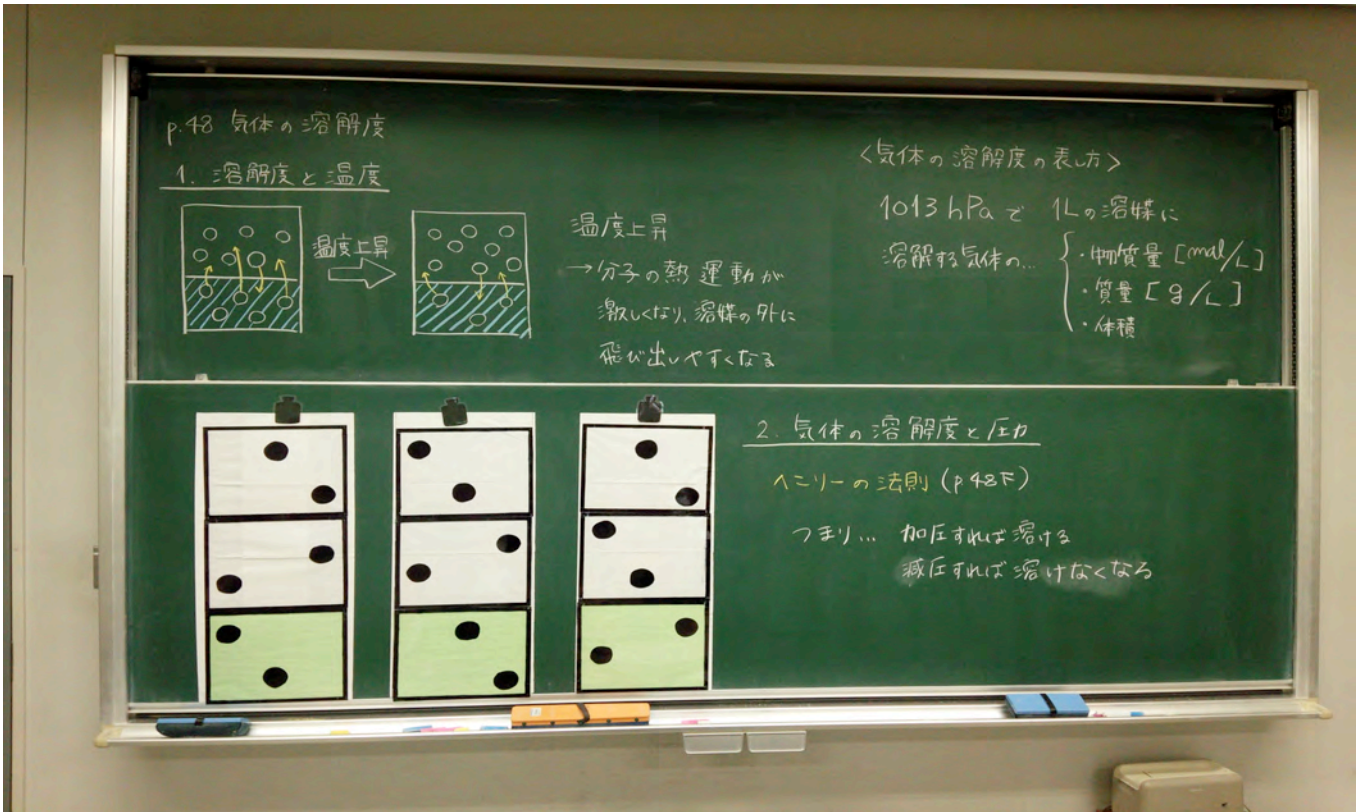 p.48 気体の溶解度
1. 溶解度と温度
温度上昇
温度上昇
→分子の熱運動が
激しくなり、溶媒の外に
飛び出しやすくなる
<気体の溶解度の表し方>
1013 hPaで 1Lの溶媒に
溶解する気体の…
・物質量 [mol/L]
・質量 [g/L]
・体積
2. 気体の溶解度と圧力
ヘンリーの法則 (p48下)
つまり… 加圧すれば溶ける
減圧すれば溶けなくなる